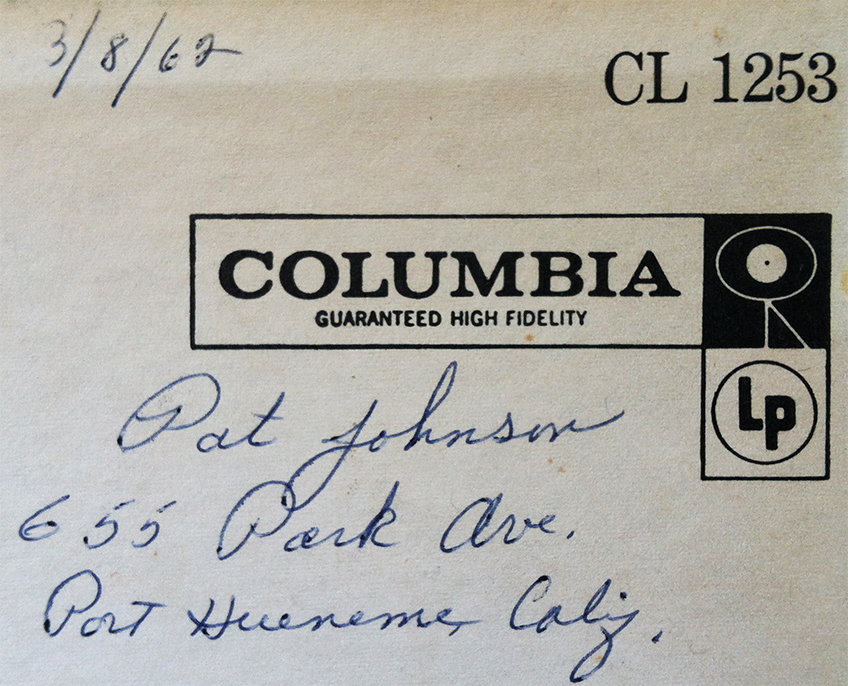 3/8/62
CL 1253
COLUMBIA
GUARANTEED HIGH FIDELITY
Lp
Pat Johnson
655 Park Ave.
Port Hueneme, Calif.